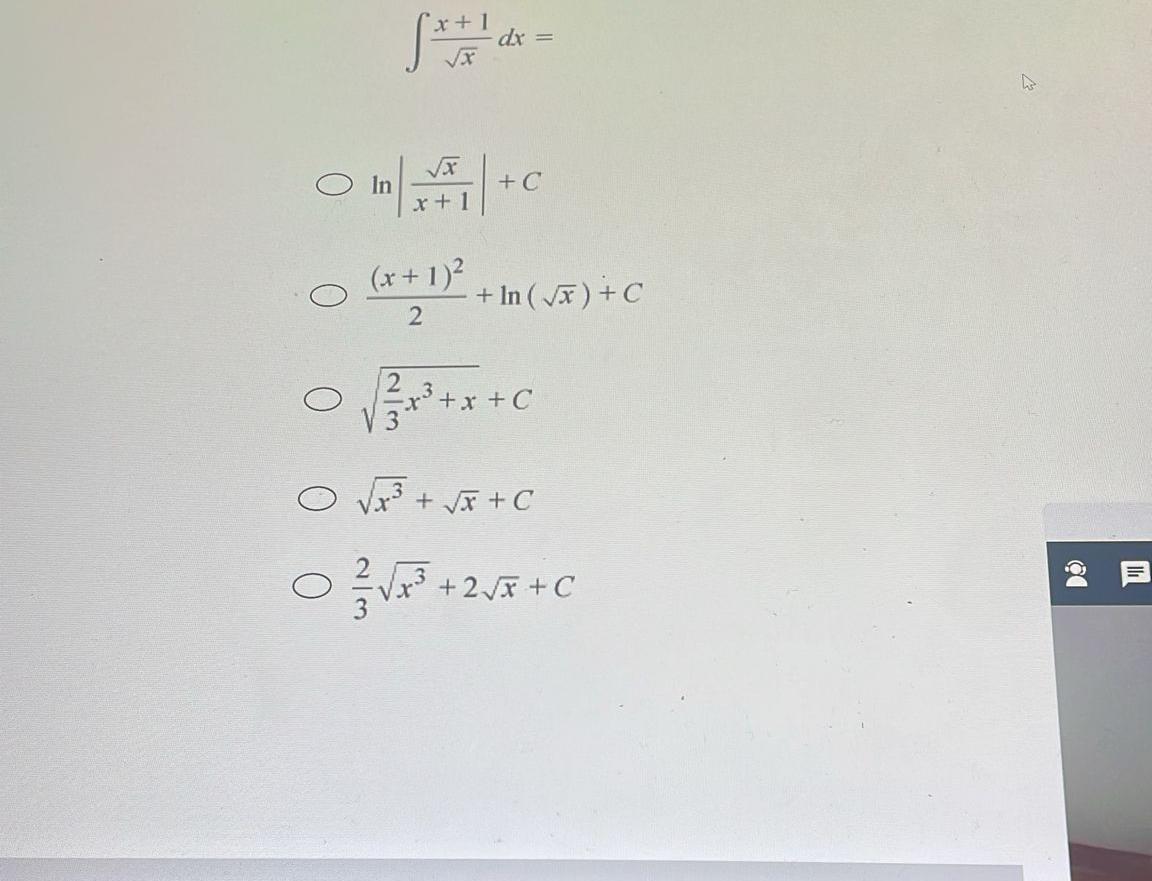 ∫ (x + 1)/√x dx =
ln |√x/(x + 1)| + C
(x + 1)²/2 + ln (√x) + C
√(2/3 x³ + x) + C
√x³ + √x + C
2/3 √x³ + 2√x + C